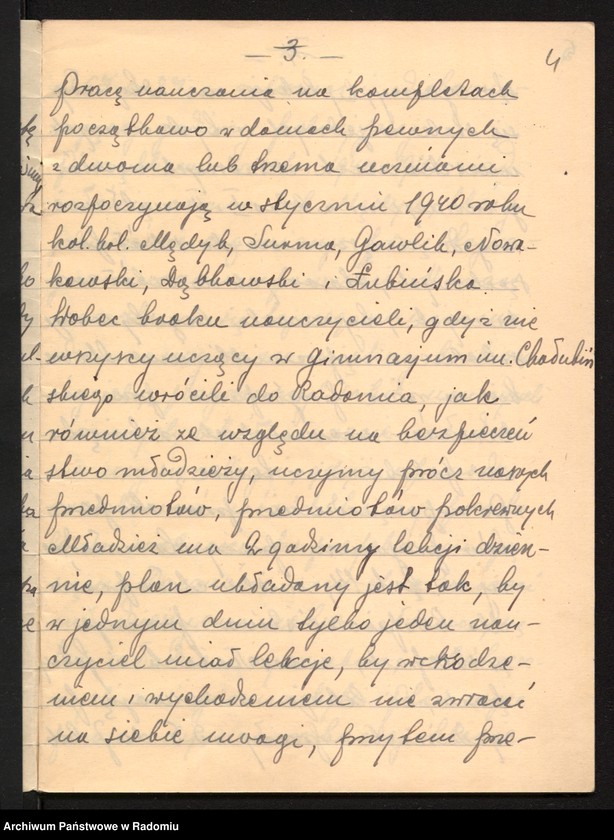 — 3. —
4
Pracę nauczania na kompletach
początkowo w domach pewnych
z dwoma lub trzema uczniami
rozpoczynają w styczniu 1940 roku
kol. kol. Mędyk, Surma, Gawlik, Nowa-
kowski, Dąbkowski i Łubińska.
Wobec braku nauczycieli, gdyż nie
wszyscy uczący w Gimnazjum im. Chałubiń
skiego wrócili do Radomia, jak
również ze względu na bezpieczeń
stwo młodzieży, uczymy prócz naszych
przedmiotów, przedmiotów pokrewnych
Młodzież ma 2 godziny lekcji dzien-
nie, plan układany jest tak, by
w jednym dniu tylko jeden nau-
czyciel miał lekcje, by wchodze-
niem i wychodzeniem nie zwracać
na siebie uwagi, przytem prze-
Archiwum Państwowe w Radomiu